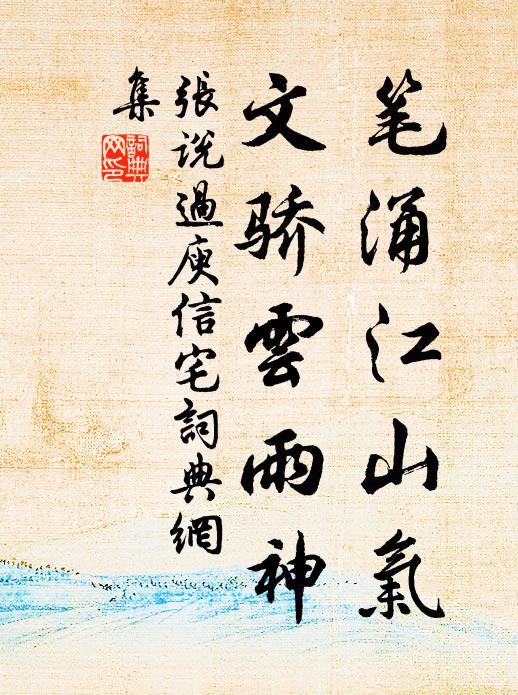 笔涌江山氣
文骄雲雨神
張说過庾信宅詞典網
集
詞典网印